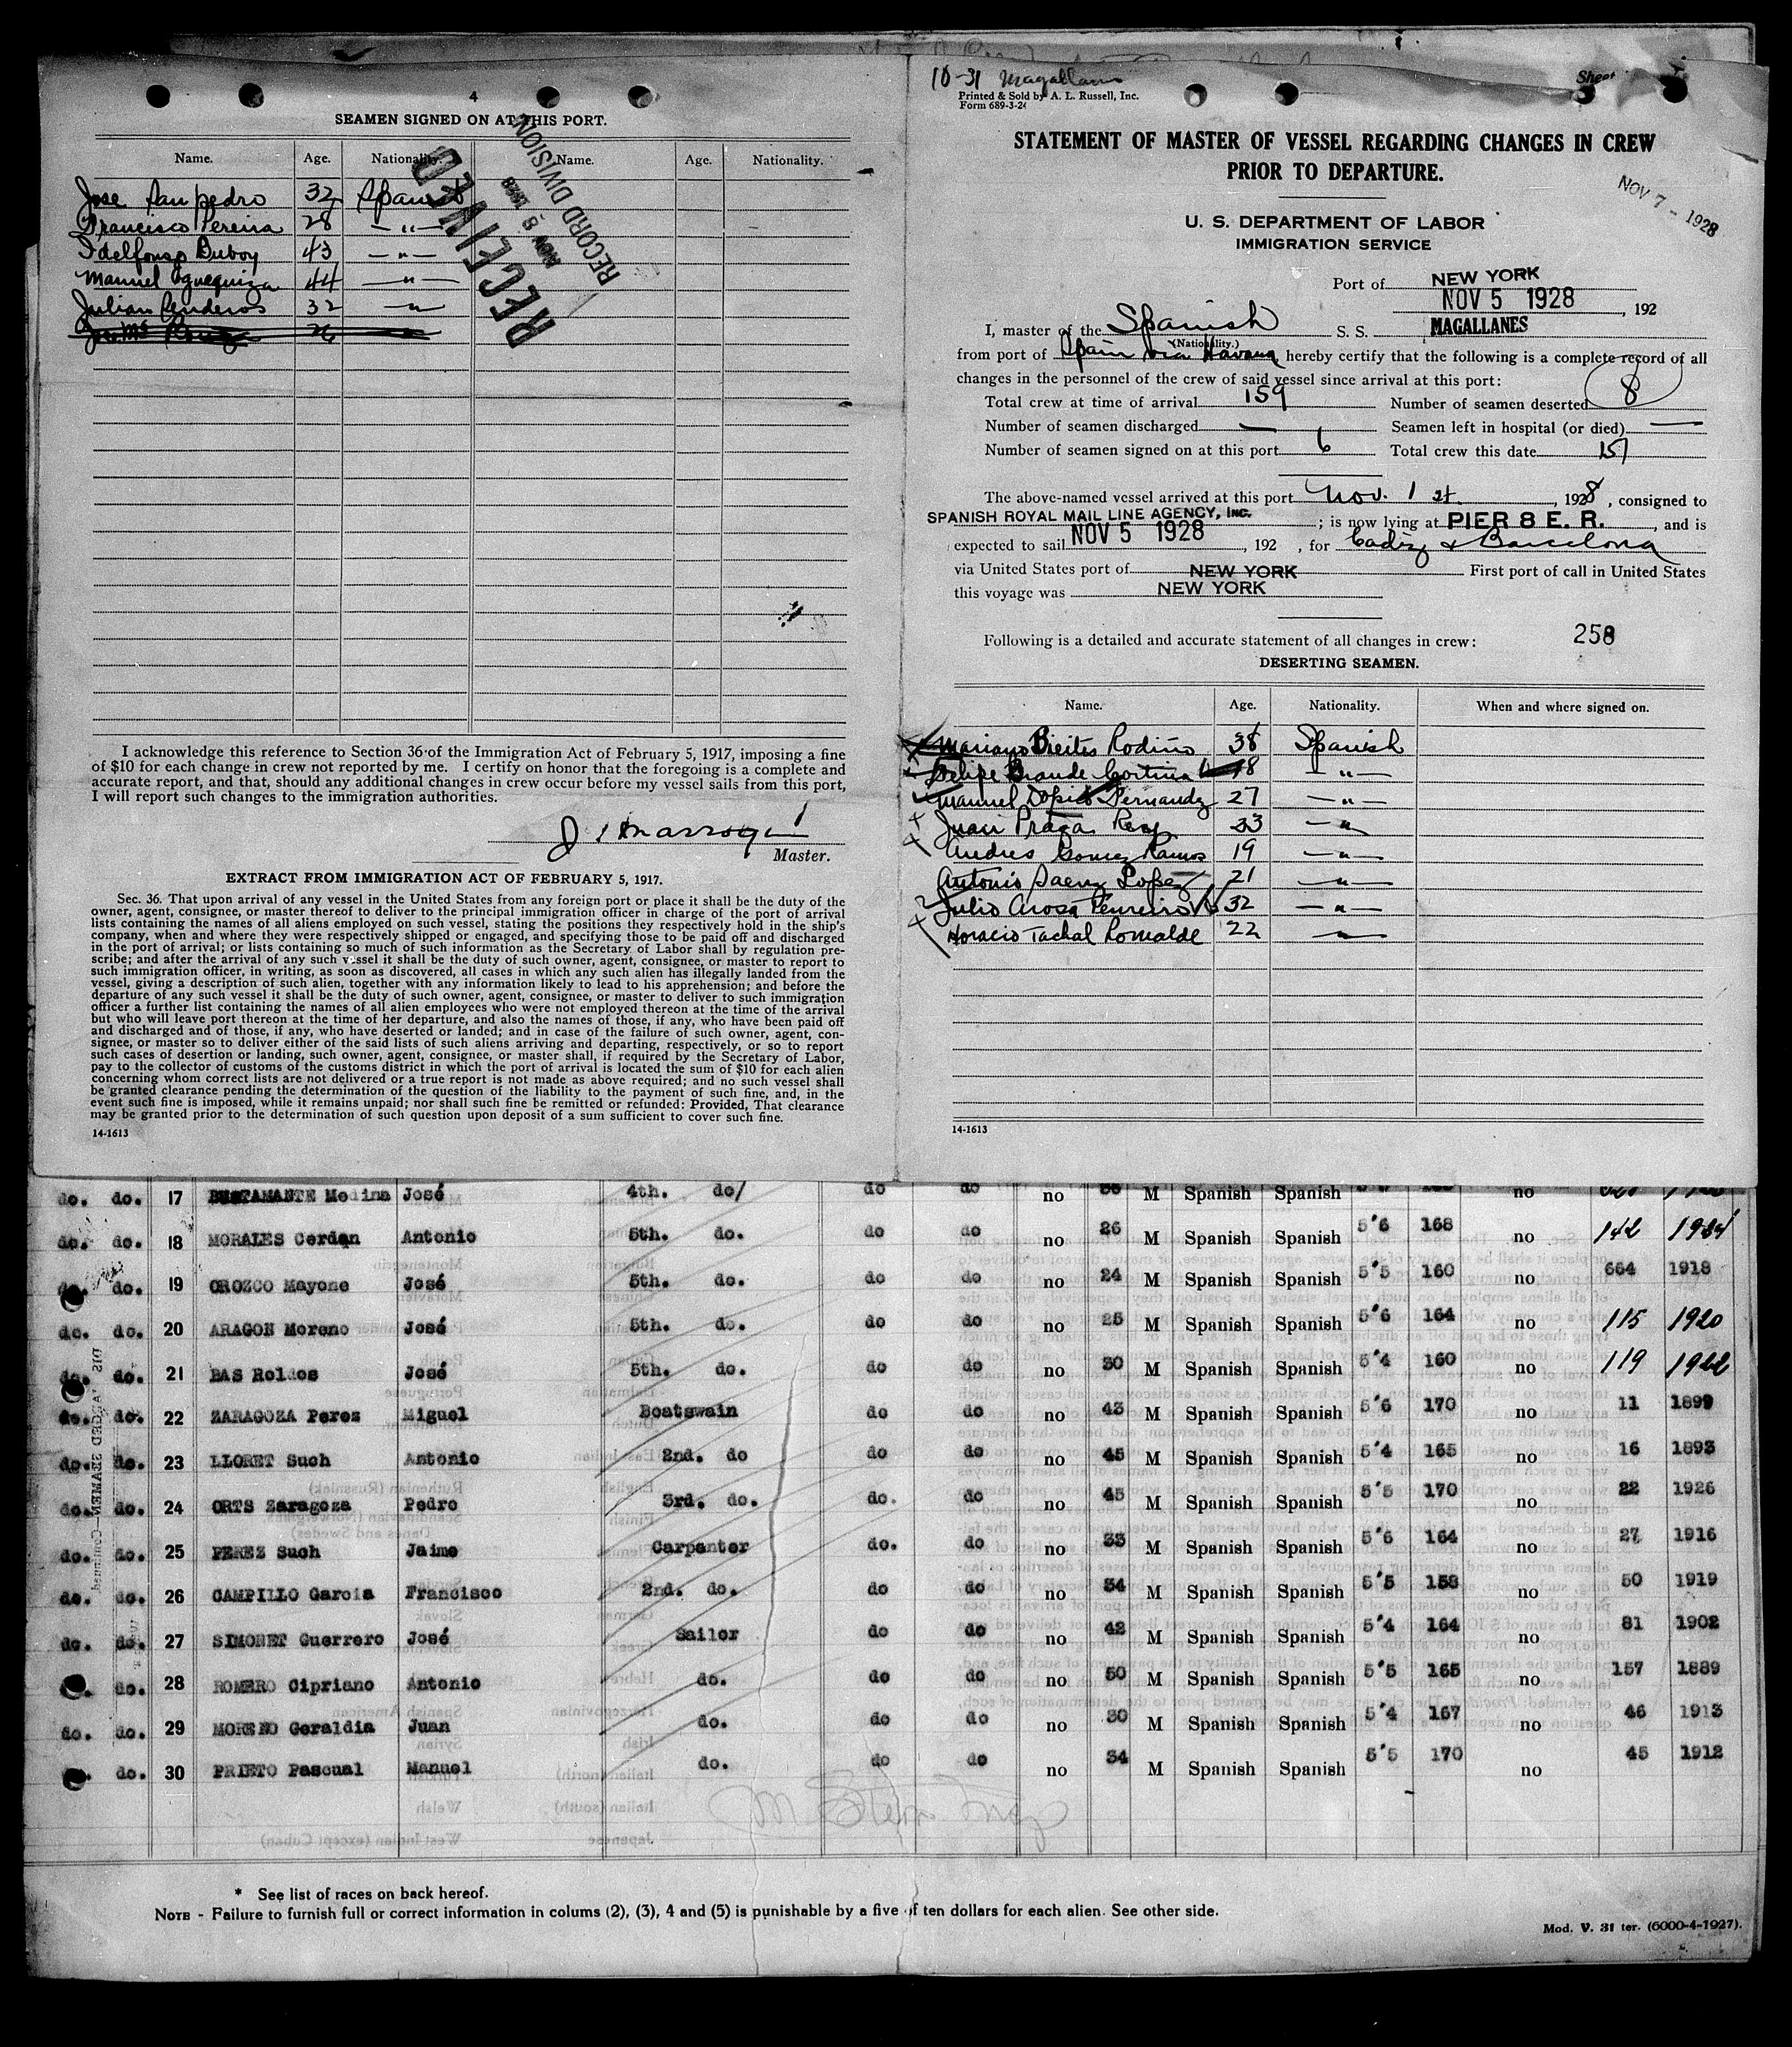 4
SEAMEN SIGNED ON AT THIS PORT.
Name. Age. Nationality. Name. Age. Nationality.
Jose Sanpedro 32 Spanish
Francisco Pereira 28 -"-
Idelfonso Duboy 43 -"-
Manuel 44 -"-
Julian 32 -"-
26
RECEIVED
NOV 8 1928
RECORD DIVISION
I acknowledge this reference to Section 36 of the Immigration Act of February 5, 1917, imposing a fine
of $10 for each change in crew not reported by me. I certify on honor that the foregoing is a complete and
accurate report, and that, should any additional changes in crew occur before my vessel sails from this port,
I will report such changes to the immigration authorities.
Master.
EXTRACT FROM IMMIGRATION ACT OF FEBRUARY 5, 1917.
Sec. 36. That upon arrival of any vessel in the United States from any foreign port or place it shall be the duty of the
owner, agent, consignee, or master thereof to deliver to the principal immigration officer in charge of the port of arrival
lists containing the names of all aliens employed on such vessel, stating the positions they respectively hold in the ship's
company, when and where they were respectively shipped or engaged, and specifying those to be paid off and discharged
in the port of arrival; or lists containing so much of such information as the Secretary of Labor shall by regulation pre-
scribe; and after the arrival of any such vessel it shall be the duty of such owner, agent, consignee, or master to report to
such immigration officer, in writing, as soon as discovered, all cases in which any such alien has illegally landed from the
vessel, giving a description of such alien, together with any information likely to lead to his apprehension; and before the
departure of any such vessel it shall be the duty of such owner, agent, consignee, or master to deliver to such immigration
officer a further list containing the names of all alien employees who were not employed thereon at the time of the arrival
but who will leave port thereon at the time of her departure, and also the names of those, if any, who have been paid off
and discharged and of those, if any, who have deserted or landed; and in case of the failure of such owner, agent, con-
signee, or master so to deliver either of the said lists of such aliens arriving and departing, respectively, or so to report
such cases of desertion or landing, such owner, agent, consignee, or master shall, if required by the Secretary of Labor,
pay to the collector of customs of the customs district in which the port of arrival is located the sum of $10 for each alien
concerning whom correct lists are not delivered or a true report is not made as above required; and no such vessel shall
be granted clearance pending the determination of the question of the liability to the payment of such fine, and, in the
event such fine is imposed, while it remains unpaid; nor shall such fine be remitted or refunded: Provided, That clearance
may be granted prior to the determination of such question upon deposit of a sum sufficient to cover such fine.
14-1613
10-31 Magallanes
Printed & Sold by A. L. Russell, Inc.
Form 689-3-24
Sheet
STATEMENT OF MASTER OF VESSEL REGARDING CHANGES IN CREW
PRIOR TO DEPARTURE.
NOV 7 - 1928
U. S. DEPARTMENT OF LABOR
IMMIGRATION SERVICE
Port of NEW YORK
NOV 5 1928, 192
I, master of the Spanish S. S. MAGALLANES
(Nationality.)
from port of Spain via Havana hereby certify that the following is a complete record of all
changes in the personnel of the crew of said vessel since arrival at this port:
Total crew at time of arrival 159 Number of seamen deserted 8
Number of seamen discharged — Seamen left in hospital (or died) —
Number of seamen signed on at this port 6 Total crew this date 157
The above-named vessel arrived at this port Nov. 1st, 1928, consigned to
SPANISH ROYAL MAIL LINE AGENCY, INC.; is now lying at PIER 8 E. R., and is
expected to sail NOV 5 1928, 192 , for Cadiz & Barcelona
via United States port of NEW YORK First port of call in United States
this voyage was NEW YORK
Following is a detailed and accurate statement of all changes in crew: 258
DESERTING SEAMEN.
Name. Age. Nationality. When and where signed on.
Mariano Bieites Rodiño 38 Spanish
Felipe Brande Cortina 18 -"-
Manuel Dopico Fernandez 27 -"-
Juan Praga Rey 33 -"-
Andres Gomez Ramos 19 -"-
Antonio Saenz Lopez 21 -"-
Julio Arosa Penreiro 32 -"-
Horacio Tachal Romalde 22 -"-
14-1613
do. do. 17 BUSTAMANTE Medina José 4th. do/ do do no 38 M Spanish Spanish no
do. do. 18 MORALES Cerdan Antonio 5th. do. do do no 26 M Spanish Spanish 5'6 168 no 142 1924
do. do. 19 OROZCO Mayone José 5th. do. do do no 24 M Spanish Spanish 5'5 160 no 664 1918
do. do. 20 ARAGON Moreno José 5th. do. do do no 25 M Spanish Spanish 5'6 164 no 115 1920
do. do. 21 BAS Roldos José 5th. do. do do no 30 M Spanish Spanish 5'4 160 no 119 1922
do. do. 22 ZARAGOZA Perez Miguel Boatswain do do no 43 M Spanish Spanish 5'6 170 no 11 1899
do. do. 23 LLORET Such Antonio 2nd. do do do no 45 M Spanish Spanish 5'4 165 no 16 1893
do. do. 24 ORTS Zaragoza Pedro 3rd. do. do. do no 45 M Spanish Spanish 5'5 170 no 22 1926
do. do. 25 PEREZ Such Jaime Carpenter do. do no 33 M Spanish Spanish 5'6 164 no 27 1916
do. do. 26 CAMPILLO Garcia Francisco 2nd. do. do do no 34 M Spanish Spanish 5'5 158 no 50 1919
do. do. 27 SIMONET Guerrero José Sailor do do no 42 M Spanish Spanish 5'4 164 no 81 1902
do. 28 ROMERO Cipriano Antonio do. do do no 50 M Spanish Spanish 5'5 165 no 157 1889
do. do. 29 MORENO Geraldia Juan do. do do no 30 M Spanish Spanish 5'4 167 no 46 1913
do. 30 PRIETO Pascual Manuel do. do do no 34 M Spanish Spanish 5'5 170 no 45 1912
* See list of races on back hereof.
NOTE - Failure to furnish full or correct information in colums (2), (3), 4 and (5) is punishable by a five of ten dollars for each alien. See other side.
Mod. V. 31 ter. (6000-4-1927).